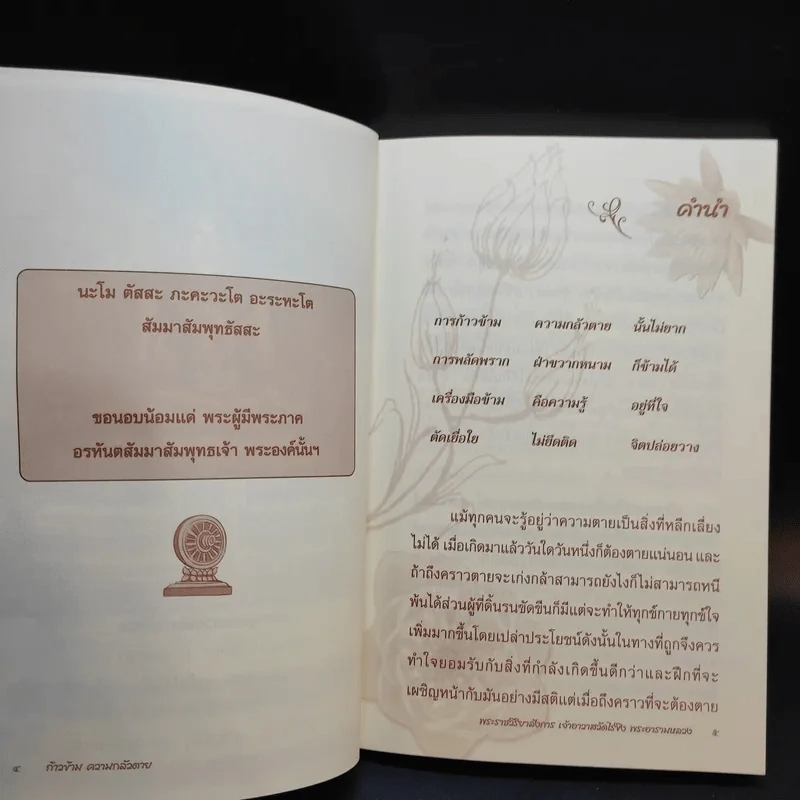 นะโม ตัสสะ ภะคะวะโต อะระหะโต
สัมมาสัมพุทธัสสะ
ขอนอบน้อมแด่ พระผู้มีพระภาค
อรหันตสัมมาสัมพุทธเจ้า พระองค์นั้นฯ
๔ ก้าวข้าม ความกลัวตาย
คำนำ
การก้าวข้าม ความกลัวตาย นั้นไม่ยาก
การพลัดพราก ฝ่าขวากหนาม ก็ข้ามได้
เครื่องมือข้าม คือความรู้ อยู่ที่ใจ
ตัดเยื่อใย ไม่ยึดติด จิตปล่อยวาง
แม้ทุกคนจะรู้อยู่ว่าความตายเป็นสิ่งที่หลีกเลี่ยง
ไม่ได้ เมื่อเกิดมาแล้ววันใดวันหนึ่งก็ต้องตายแน่นอน และ
ถ้าถึงคราวตายจะเก่งกล้าสามารถยังไงก็ไม่สามารถหนี
พ้นได้ส่วนผู้ที่ดิ้นรนขัดขืนก็มีแต่จะทำให้ทุกข์กายทุกข์ใจ
เพิ่มมากขึ้นโดยเปล่าประโยชน์ดังนั้นในทางที่ถูกจึงควร
ทำใจยอมรับกับสิ่งที่กำลังเกิดขึ้นดีกว่าและฝึกที่จะ
เผชิญหน้ากับมันอย่างมีสติแต่เมื่อถึงคราวที่จะต้องตาย
พระราชวิริยาลังการ เจ้าอาวาสวัดไร่ขิง พระอารามหลวง ๕